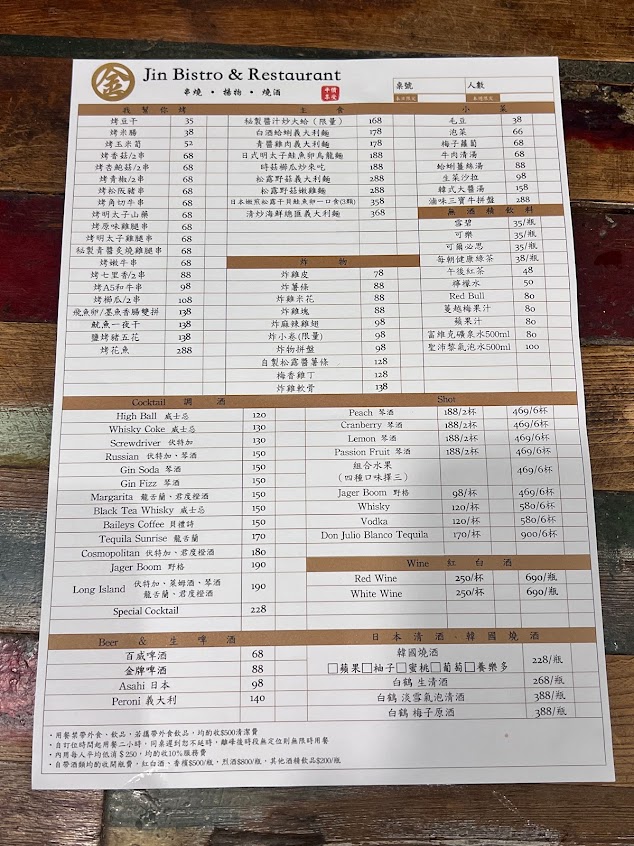 金 Jin Bistro & Restaurant
串燒 • 揚物 • 燒酒
桌號 人數
我幫你烤
烤豆干 35
烤米腸 38
烤玉米筍 52
烤香菇/2串 68
烤杏鮑菇/2串 68
烤青椒/2串 68
烤松阪豬串 68
烤角切牛串 68
烤明太子山藥 68
烤原味雞腿串 68
烤明太子雞腿串 68
秘製青醬炙燒雞腿串 68
烤嫩牛串 68
烤七里香/2串 88
烤A5和牛串 98
烤櫛瓜/2串 108
飛魚卵/墨魚香腸雙拼 138
魷魚一夜干 138
鹽烤豬五花 138
烤花魚 288
主食
秘製醬汁炒大蛤（限量） 168
白酒蛤蜊義大利麵 178
青醬雞肉義大利麵 178
日式明太子鮭魚卵烏龍麵 188
時菇櫛瓜炒來吃 188
松露野菇義大利麵 288
松露野菇嫩雞麵 288
日本嫩煎松露干貝鮭魚卵一口食(3顆) 358
清炒海鮮總匯義大利麵 368
炸物
炸雞皮 78
炸薯條 88
炸雞米花 88
炸雞塊 88
炸麻辣雞翅 98
炸小卷(限量) 98
炸物拼盤 98
自製松露醬薯條 128
梅香雞丁 128
炸雞軟骨 138
小菜
毛豆 38
泡菜 66
梅子蘿蔔 68
牛肉清湯 68
蛤蜊薑絲湯 88
生菜沙拉 98
韓式大醬湯 158
滷味三寶牛拼盤 288
無酒精飲料
雪碧 35/瓶
可樂 35/瓶
可爾必思 35/瓶
每朝健康綠茶 38/瓶
午後紅茶 48
檸檬水 50
Red Bull 80
蔓越梅果汁 80
蘋果汁 80
富維克礦泉水500ml 80
聖沛黎氣泡水500ml 100
Cocktail 調酒
High Ball 威士忌 120
Whisky Coke 威士忌 130
Screwdriver 伏特加 130
Russian 伏特加、琴酒 150
Gin Soda 琴酒 150
Gin Fizz 琴酒 150
Margarita 龍舌蘭、君度橙酒 150
Black Tea Whisky 威士忌 150
Baileys Coffee 貝禮詩 150
Tequila Sunrise 龍舌蘭 170
Cosmopolitan 伏特加、君度橙酒 180
Jager Boom 野格 190
Long Island 伏特加、萊姆酒、琴酒 龍舌蘭、君度橙酒 190
Special Cocktail 228
Shot
Peach 琴酒 188/2杯 469/6杯
Cranberry 琴酒 188/2杯 469/6杯
Lemon 琴酒 188/2杯 469/6杯
Passion Fruit 琴酒 188/2杯 469/6杯
組合水果
（四種口味擇三） 469/6杯
Jager Boom 野格 98/杯 469/6杯
Whisky 120/杯 580/6杯
Vodka 120/杯 580/6杯
Don Julio Blanco Tequila 170/杯 900/6杯
Wine 紅白酒
Red Wine 250/杯 690/瓶
White Wine 250/杯 690/瓶
Beer & 生啤酒
百威啤酒 68
金牌啤酒 88
Asahi 日本 98
Peroni 義大利 140
日本清酒、韓國燒酒
韓國燒酒
□蘋果□柚子□蜜桃□葡萄□養樂多 228/瓶
白鶴 生清酒 268/瓶
白鶴 淡雪氣泡清酒 388/瓶
白鶴 梅子原酒 388/瓶
・用餐禁帶外食、飲品，若攜帶外食飲品，均酌收$500清潔費
・自訂位時間起用餐二小時，同桌遲到恕不延時，離峰後時段無定位則無限時用餐
・內用每人平均低消＄250，均酌收10%服務費
・自帶酒類均酌收開瓶費，紅白酒、香檳$500/瓶，烈酒$800/瓶，其他酒精飲品$200/瓶